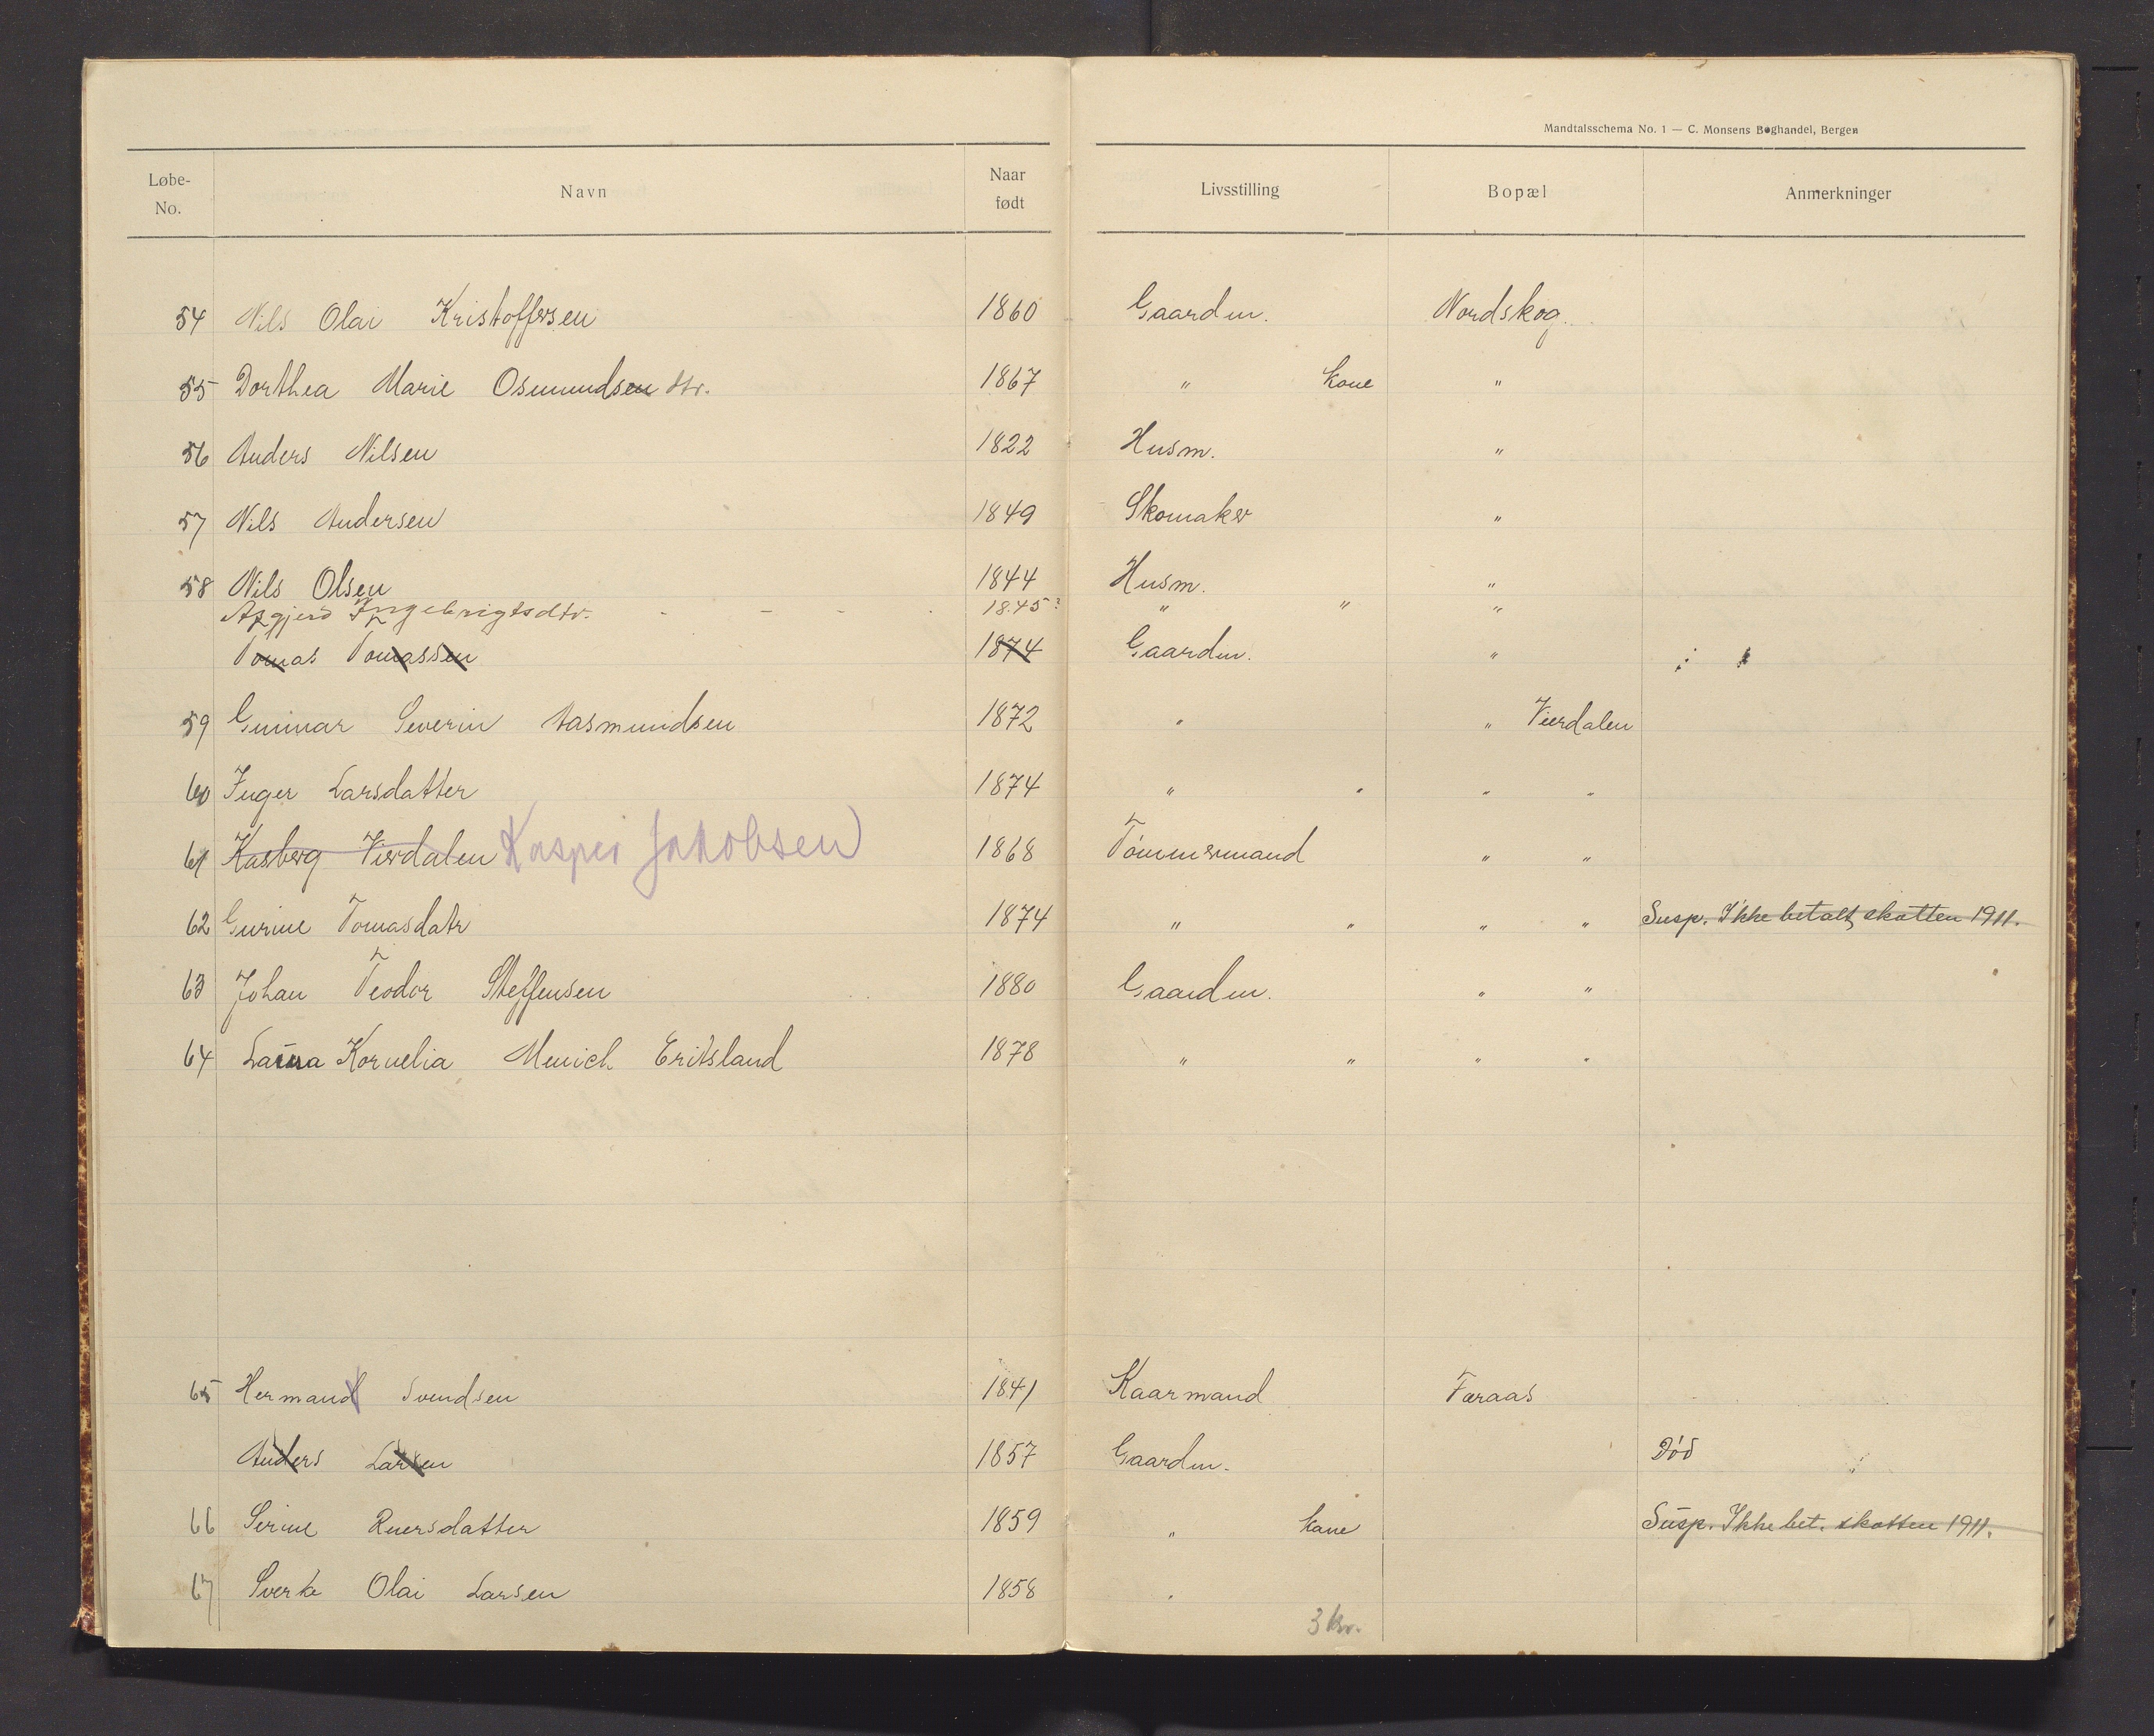 Mandtalsschema No. 1 — C. Monsens Boghandel, Bergen
Løbe-No. Navn Naar født Livsstilling Bopæl Anmerkninger
54 Nils Olai Kristoffersen 1860 Gaardm. Nordskog
55 Dorthea Marie Osmundsen dtr. 1867 " kone "
56 Anders Nilsen 1822 Husm. "
57 Nils Andersen 1849 Skomaker "
58 Nils Olsen 1844 Husm. "
Azgjerd Ingebrigtsdtr. - - - 1845? " " "
Tomas Tomassen 1874 Gaardm. "
59 Gunnar Severin Aasmundsen 1872 " " Vierdalen
60 Inger Larsdatter 1874 " " " "
61 Kasberg Vierdalen Kasper Jakobsen 1868 Tömmermand " "
62 Gurine Tomasdatr 1874 " " " " Susp. Ikke betalt skatten 1911.
63 Johan Teodor Steffensen 1880 Gaardm. " "
64 Laura Kornelia Menich Eritsland 1878 " " " "
65 Hermand Svendsen 1841 Kaarmand Færaas
Anders Larsen 1857 Gaardm. Död
66 Serine Ruersdatter 1859 " kone Susp. Ikke bet. skatten 1911.
67 Sverke Olai Larsen 1858 "
3 kr.